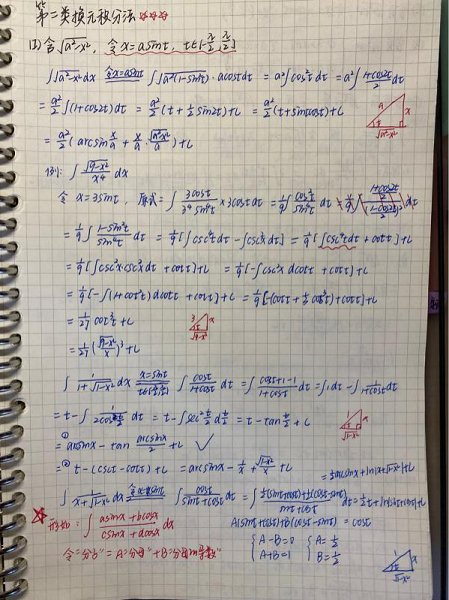 第二类换元积分法 ☆☆☆
(2) 含√(a²-x²), 令x=asint, t∈[-π/2, π/2]
∫√(a²-x²)dx 令x=asint ∫√(a²(1-sin²t))·acostdt = a²∫cos²tdt = a²∫(1+cos2t)/2 dt
= a²/2 ∫(1+cos2t)dt = a²/2 (t+1/2 sin2t)+C = a²/2 (t+sintcost)+C
= a²/2 (arcsin x/a + x/a · √(a²-x²)/a)+C
例: ∫ √(9-x²)/x⁴ dx
令 x=3sint, 原式=∫ 3cost/(3⁴sin⁴t) ×3costdt = 1/9 ∫ cos²t/sin⁴t dt
= 1/9 ∫ (1-sin²t)/sin⁴t dt = 1/9 [∫csc⁴tdt - ∫csc²tdt] = 1/9 [∫csc⁴tdt + cott]+C
= 1/9 [∫csc²x·csc²xdt + cott]+C = 1/9 [-∫csc²x dcott + cott]+C
= 1/9 [-∫(1+cot²t)dcott + cott]+C = 1/9 [-(cott + 1/3 cot³t)+cott]+C
= 1/27 cot³t+C
= 1/27 (√(9-x²)/x)³+C
∫ 1/(1+√(1-x²)) dx x=sint ∫ cost/(1+cost) dt = ∫ (cost+1-1)/(1+cost) dt = ∫1dt - ∫ 1/(1+cost) dt
= t-∫ 1/(2cos²t/2) dt = t-∫sec² t/2 d t/2 = t-tan t/2 +C
① = arcsinx - tan arcsinx/2 +C ✓
② = t-(csct-cott)+C = arcsinx - 1/x + √(1-x²)/x +C
= 1/2 arcsinx + ln|x+√(1-x²)|+C
∫ 1/(x+√(1-x²)) dx 令x=sint ∫ cost/(sint+cost) dt = ∫ (1/2(sint+cost)+1/2(cost-sint))/(sint+cost) dt = 1/2 t + ln|sint+cost|+C
☆ 形如: ∫ (asinx+bcosx)/(csinx+dcosx) dx
A(sint+cost)+B(cost-sint) = cost
令"分子"=A"分母"+B"分母的导数"
{A-B=0 {A=1/2
{A+B=1 {B=1/2